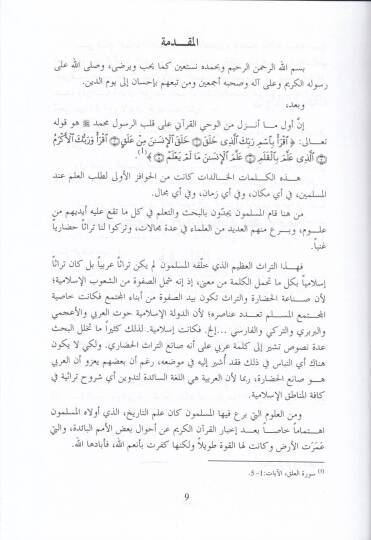 المقدمة
بسم الله الرحمن الرحيم وبحمده نستعين كما يحب ويرضى، وصلى الله على
رسوله الكريم وعلى آله وصحبه أجمعين ومن تبعهم بإحسان إلى يوم الدين.
وبعد،
إنَّ أول ما أنزل من الوحي القرآني على قلب الرسول محمد ﷺ هو قوله
تعالى: ﴿ٱقۡرَأۡ بِٱسۡمِ رَبِّكَ ٱلَّذِي خَلَقَ ۝ خَلَقَ ٱلۡإِنسَٰنَ مِنۡ عَلَقٍ ۝ ٱقۡرَأۡ وَرَبُّكَ ٱلۡأَكۡرَمُ
۝ ٱلَّذِي عَلَّمَ بِٱلۡقَلَمِ ۝ عَلَّمَ ٱلۡإِنسَٰنَ مَا لَمۡ يَعۡلَمۡ ۝﴾(1).
هذه الكلمات الخالدات كانت من الحوافز الأولى لطلب العلم عند
المسلمين، في أي مكان، وفي أي زمان، وفي أي مجال.
من هنا قام المسلمون يجدّون بالبحث والتعلم في كل ما تقع عليه أيديهم من
علوم، وبرع منهم العديد من العلماء في عدة مجالات، وتركوا لنا تراثاً حضارياً
غنياً.
فهذا التراث العظيم الذي خلّفه المسلمون لم يكن تراثاً عربياً بل كان تراثاً
إسلامياً بكل ما تحمل الكلمة من معين، إذ إنه شمل الصفوة من الشعوب الإسلامية؛
لأن صناعة الحضارة والتراث تكون بيد الصفوة من أبناء المجتمع فكانت خاصية
المجتمع المسلم تعدد عناصره؛ لأن الدولة الإسلامية حوت العربي والأعجمي
والبربري والتركي والفارسي ...إلخ. فكانت إسلامية. لذلك كثيراً ما تخلل البحث
عدة نصوص تشير إلى كلمة عربي على أنه صانع التراث الحضاري. ولكي لا يكون
هناك أي التباس في ذلك فقد أشير إليه في موضعه، رغم أن بعضهم يعزو أن العربي
هو صانع الحضارة، ربما لأن العربية هي اللغة السائدة لتدوين أي شروح تراثية في
كافة المناطق الإسلامية.
ومن العلوم التي برع فيها المسلمون كان علم التاريخ، الذي أولاه المسلمون
اهتماماً خاصاً بعد إخبار القرآن الكريم عن أحوال بعض الأمم البائدة، والتي
عَمَرَت الأرض وكانت لها القوة طويلاً ولكنها كفرت بأنعم الله، فأبادها الله.
(1) سورة العلق، الآيات:1-5.
9